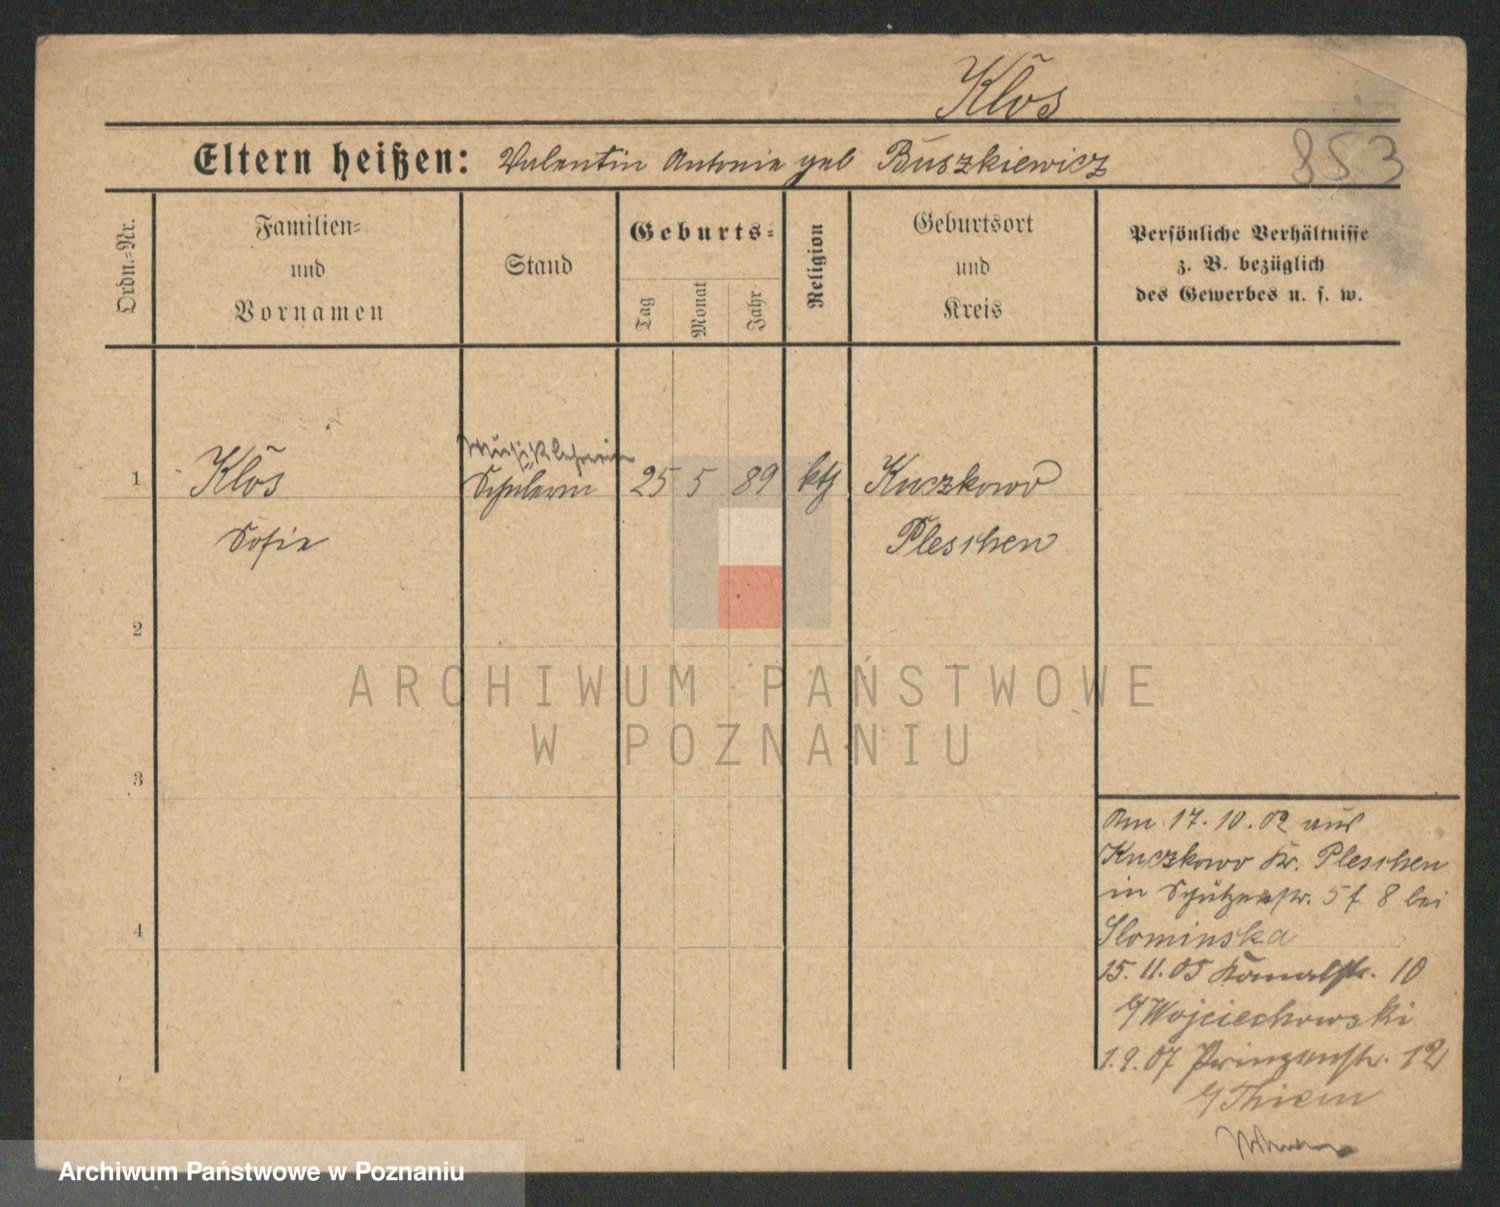 Klōs
Eltern heißen: Valentin Antonie geb Buszkiewicz
853
Ordn.-Nr.
Familien-
und
Vornamen
Stand
Geburts-
Tag
Monat
Jahr
Religion
Geburtsort
und
Kreis
Persönliche Verhältnisse
z. B. bezüglich
des Gewerbes u. s. w.
Musiklehrerin
1 Klōs Schülerin 25 5 89 kth Kuczkowo
Sofie Pleschen
2
3
4
Am 17.10.02 aus
Kuczkowo Kr. Pleschen
in Schützenstr. 5 f 8 bei
Slominska
15.11.05 Kanalstr. 10
b/ Wojciechowski
1.9.07 Prinzenstr. 12
b/ Thiem
ARCHIWUM PAŃSTWOWE
W POZNANIU
Archiwum Państwowe w Poznaniu